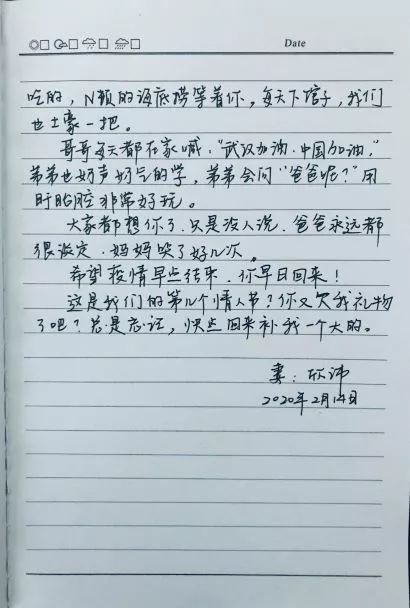 Date
吃的，N顿的海底捞等着你，每天下馆子，我们
也土豪一把。
哥哥每天都在家喊：“武汉加油，中国加油，”
弟弟也奶声奶气的学，弟弟会问“爸爸呢？”用
盱眙腔非常好玩。
大家都想你了，只是没人说，爸爸永远都
很淡定，妈妈哭了好几次。
希望疫情早点结束，你早日回来！
这是我们的第几个情人节？你又欠我礼物
了吧？总是忘记，快点回来补我一个大的。
妻：欣
2020年2月14日